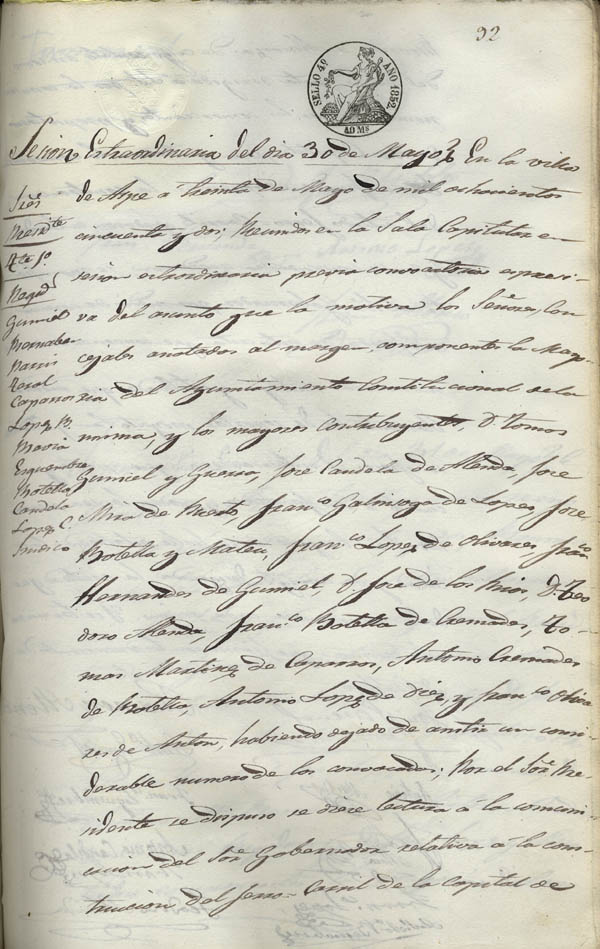 92
SELLO 4º AÑO 1852.
40 Ms
Sesion Extraordinaria del dia 30 de Mayo
En la villa
de Aspe á treinta de Mayo de mil ochocientos
cincuenta y dos; Reunidos en la Sala Capitular en
sesion extraordinaria previa convocatoria expresi-
va del asunto que la motiva los Señores, Con
cejales anotados al margen, componentes la Mayo-
ria del Ayuntamiento Constitucional de la
misma, y los mayores contribuyentes, D. Tomas
Gumiel y Guerra, Jose Candela de Alenda, Jose
Mira de Puerto, Franco Galinsoga de Lopez, Jose
Botella y Mateu, Franco Lopez de Olivares, Franco
Hernandes de Gumiel, D. Jose de los Rios, D. Teo
doro Alenda, Franco Botella de Cremades, To-
mas Martinez de Caparros, Antonio Cremades
de Botella, Antonio Lopez de Diez, y Franco Oliva
res de Anton, habiendo dejado de asistir un consi-
derable numero de los convocados; Por el Sor Pre-
sidente se dispuso se diese lectura á la comuni-
cacion del Sor Gobernador relativa á la cons-
truccion del ferro-Carril de la Capital de
Sres
Presidte
Tte 1º
Regid
Gumiel
Bernabeu
Caparros
Lopez B.
Pavia
Botella
Candela
Lopez C.
Sindico